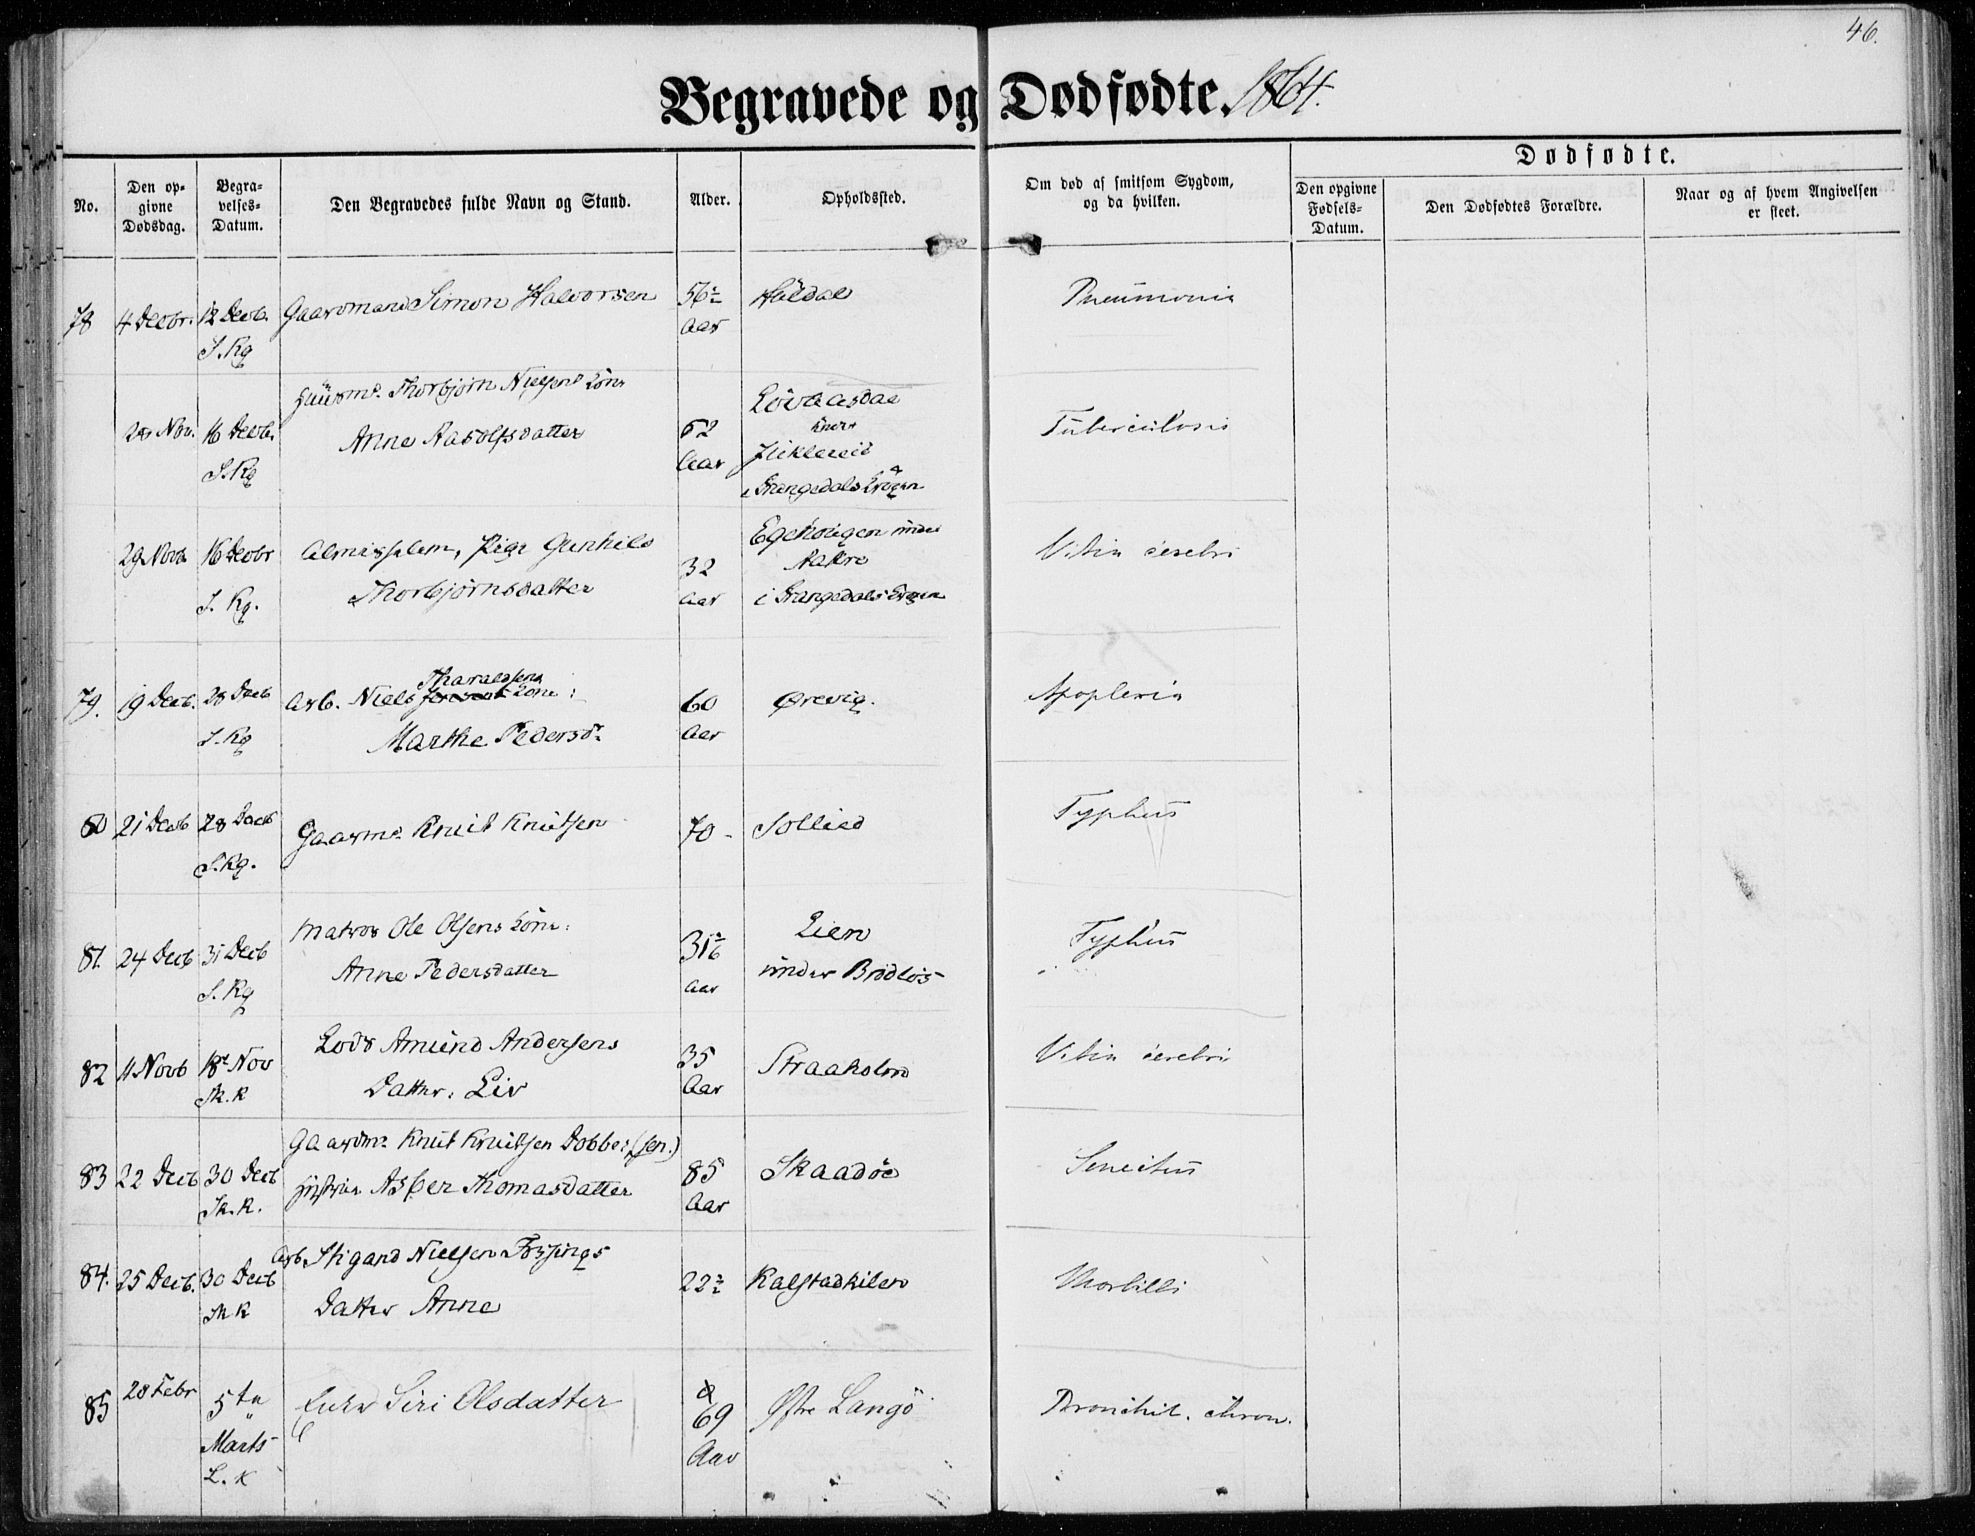 46.
Begravede og Dødfødte. 1864.
Dødfødte.
No.
Den op-
givne
Dødsdag.
Begra-
velses-
Datum.
Den Begravedes fulde Navn og Stand.
Alder.
Opholdssted.
Om død af smitsom Sygdom,
og da hvilken.
Den opgivne
Fødsels-
Datum.
Den Dødfødtes Forældre.
Naar og af hvem Angivelsen
er skeet.
78 4 Decbr. 12 Decb. Gaardmand Simon Halvorsen 56 Pneumonia
S. Kg Aar
Huusmd. Thorbjørn Nielsens Kone
Nov. 16 Decb. Anne 52 Tuberculosis
S. Kg Aar
i Drangedals
29 Novb 16 Decbr Almisselem, Pige Gunhild 32 Vitia cerebri
S. Kg. Thorbjørnsdatter Aar i Drangedals
Tharaldsens
79. 19 Decb. 28 Decb Arb. Niels Kone: 60 Ørevig. Apoplexia
S. Kg Marthe Pedersd. Aar
80 21 Decb 28 Decb Gaardmd. Knut Knutsen 70 Sollied Typhus
S. Kg.
81. 24 Decb 31 Decb Matros Ole Olsens Kone: Lien Typhus
S. Kg Anne Pedersdatter Aar under Brødløs
82 11 Novb 18 Nov Lods Amund Andersens 35 Straaholmen Vitia cerebri
Sk. K Datter: Liv Aar
83 22 Decb 30 Decb Gaardmd. Knut Knutsen Dobbe: (sen.) 85 Skaadøe Senectus
Sk. K. Hustru Asber Thomasdatter Aar
84. 25 Decb. 30 Decb Arb. Stigand Nielsen Fossings 22 Kalstadkilen Morbilli
Sk K Datter Anne
85 28 Febr 5te Enke Siri Olsdatter 69 Østre Langø Bronchit. chron.
Marts Aar
L. K